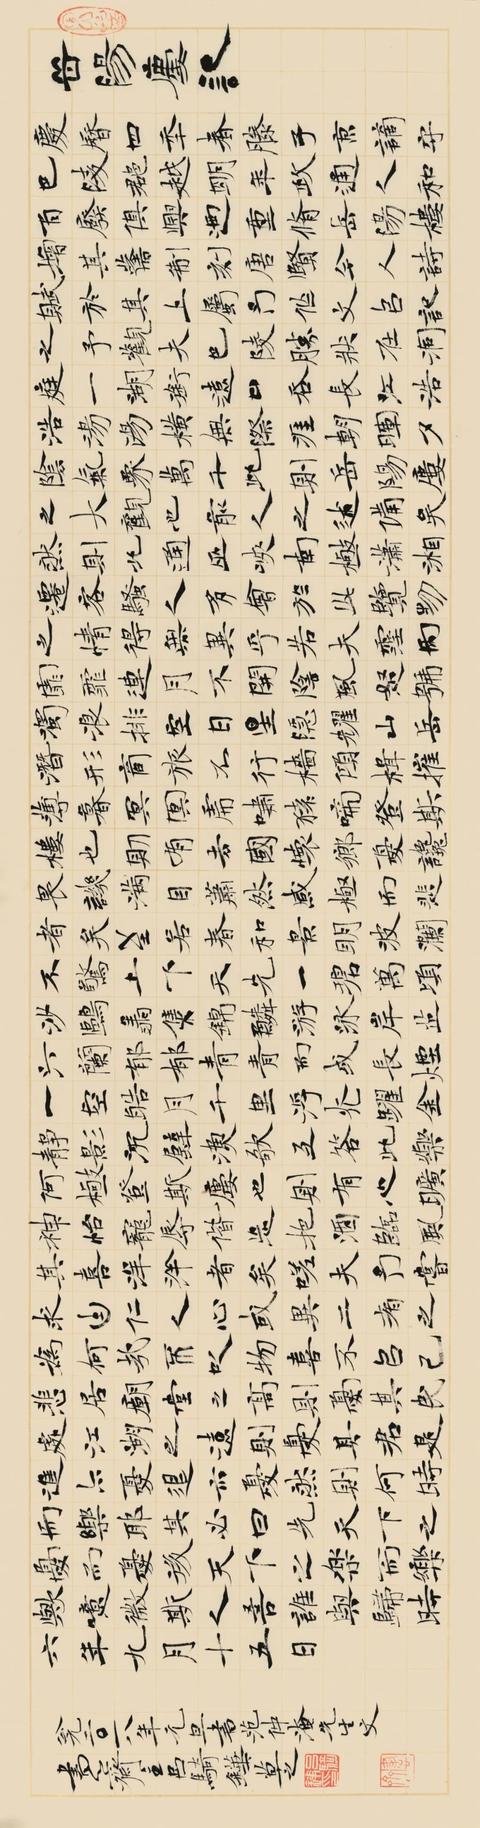 岳陽樓記
慶曆四年春滕子京謫守
巴陵郡越明年政通人和
百廢俱興迺重脩岳陽樓
增其舊制刻唐賢今人詩
賦於其上屬予作文以記
之予觀夫巴陵勝狀在洞
庭一湖銜遠山吞長江浩
浩湯湯橫無際涯朝暉夕
陰氣象萬千此則岳陽樓
之大觀也前人之述備矣
然則北通巫峽南極瀟湘
遷客騷人多會於此覽物
之情得無異乎若夫霪雨
霏霏連月不開陰風怒號
濁浪排空日星隱耀山岳
潛形商旅不行檣傾楫摧
薄暮冥冥虎嘯猿啼登斯
樓也則有去國懷鄉憂讒
畏譏滿目蕭然感極而悲
者矣至若春和景明波瀾
不驚上下天光一碧萬頃
沙鷗翔集錦鱗游泳岸芷
汀蘭郁郁青青而或長煙
一空皓月千里浮光躍金
靜影沉璧漁歌互答此樂
何極登斯樓也則有心曠
神怡寵辱偕忘把酒臨風
其喜洋洋者矣嗟夫予嘗
求古仁人心或異二者之
為何哉不以物喜不以己
悲居廟堂之高則憂其民
處江湖之遠則憂其君是
進亦憂退亦憂然則何時
而樂耶其必曰先天下之
憂而憂後天下之樂而樂
歟噫微斯人吾誰與歸時
六年九月十五日
公元二〇一八年元旦書范仲淹先生文
齋主吕騎草之